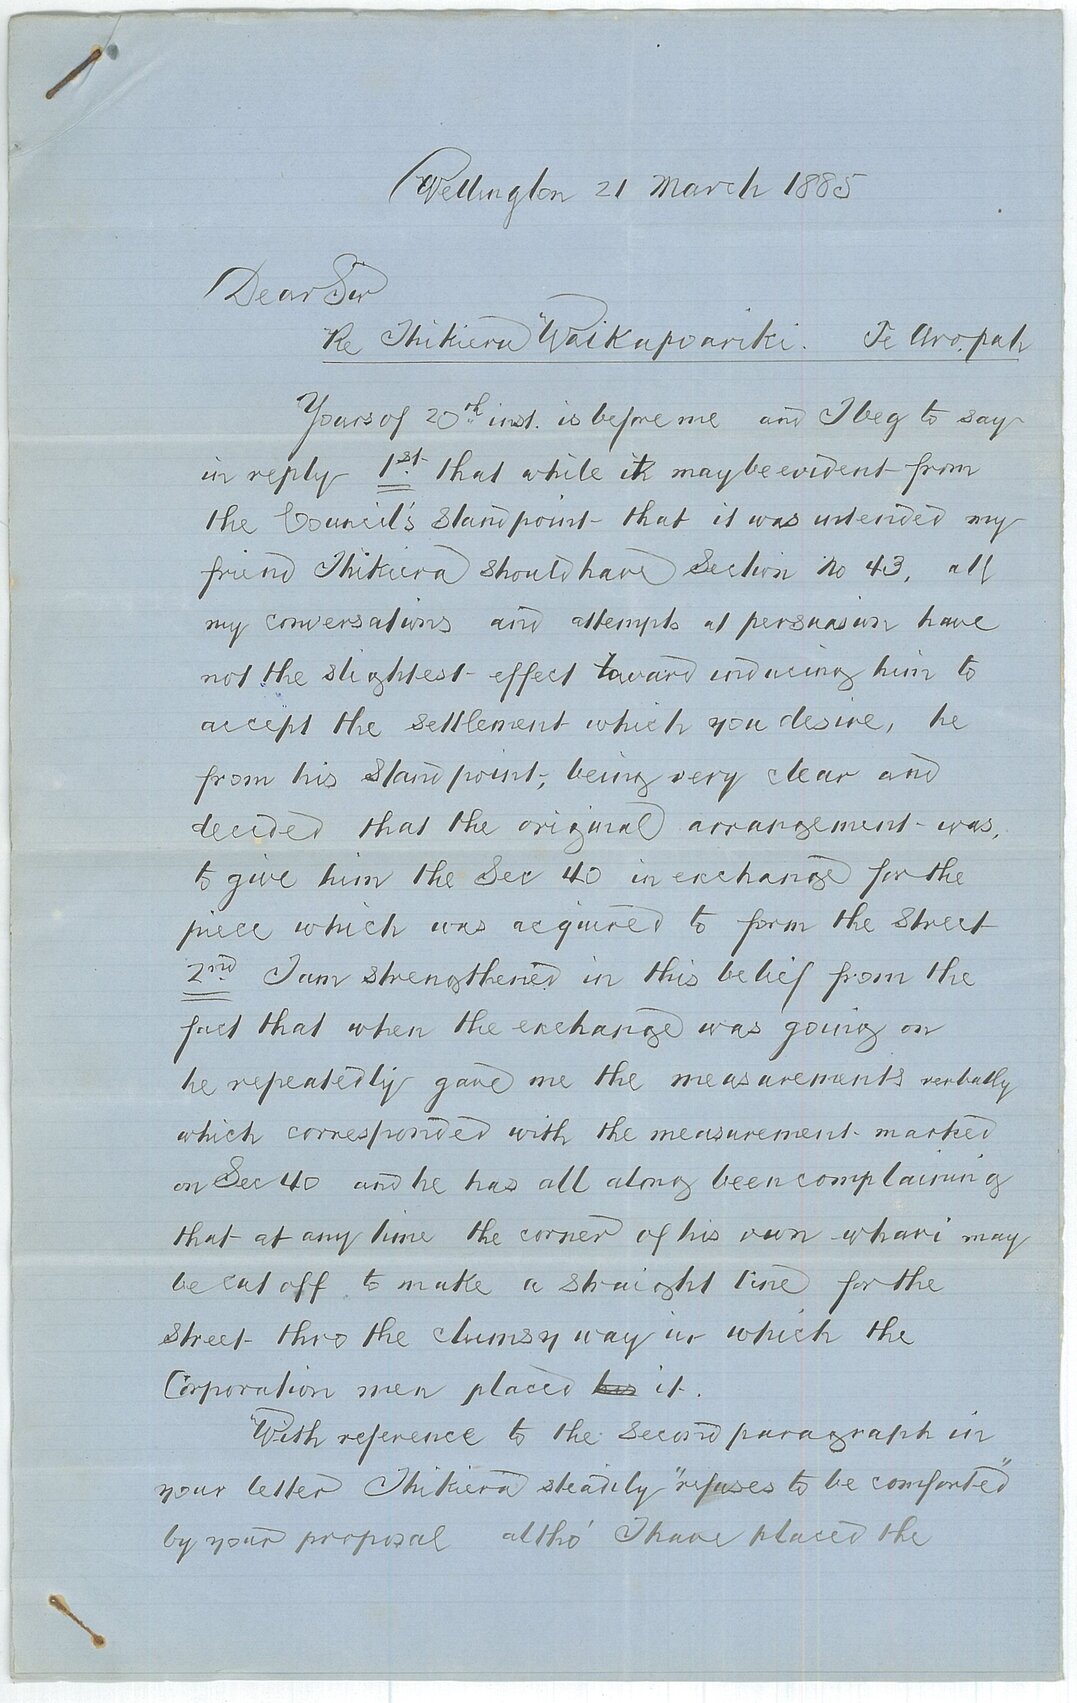 Wellington 21 March 1885
Dear Sir
Re Ihikiera Waikapoariki. Te Aro. pah
Yours of 20th inst. is before me and I beg to say
in reply 1st that while it may be evident from
the Council's Standpoint that it was intended my
friend Ihikiera should have Section No 43, all
my conversations and attempts at persuasion have
not the slightest effect toward inducing him to
accept the settlement which you desire, he
from his Standpoint, being very clear and
decided that the original arrangement was,
to give him the Sec 40 in exchange for the
piece which was acquired to form the Street
2nd I am strengthened in this belief from the
fact that when the exchange was going on
he repeatedly gave me the measurements verbally
which corresponded with the measurement marked
on Sec 40 and he has all along been complaining
that at any time the corner of his own whari may
be cut off to make a straight line for the
Street thro the clumsy way in which the
Corporation men placed his it.
With reference to the Second paragraph in
your letter Ihikiera steadily "refuses to be comforted"
by your proposal altho' I have placed the